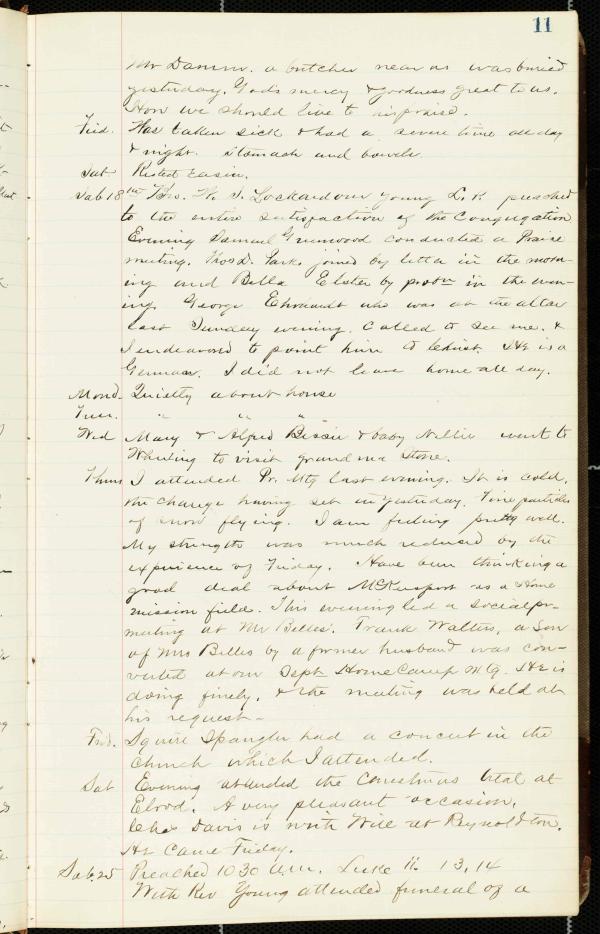 11
Mr Damm. a butcher near us was buried
yesterday. Gods mercy & goodness great to us.
How we should live to his praise.
Frid. Was taken sick & had a severe time all day
& night. stomach and bowels.
Sat Rested Easier.
Sab 18th Bro. W. S. Lockard our young L. P. preached
to the entire satisfaction of the Congregation
Evening Samuel Greenwood conducted a Praise
meeting. Thos D. Parks joined by letter in the morn-
ing and Bella Elster by probn in the even-
ing. George Ehrhardt who was at the altar
last Sunday evening. Called to see me. &
I endeavored to point him to Christ. He is a
German. I did not leave home all day.
Mond. Quietly about house
Tues. " " "
Wed Mary & Alfred Bessie & baby Nellie went to
Whiting to visit grandma Stone.
Thurs I attended Pr. Mtg last evening. It is cold.
the change having set in yesterday. Fine particles
of snow flying. I am feeling pretty well.
My strength was much reduced by the
experience of Friday. Have been thinking a
good deal about McKeesport as a Home
mission field. This evening led a social pr-
meeting at Mr Belles'. Frank Walters, a son
of Mrs Belles by a former husband was con-
verted at our Sept Home Camp Mtg. He is
doing finely, & the meeting was held at
his request-
Frid. Squire Spangler had a concert in the
church which I attended.
Sat Evening attended the Christmas treat at
Elrod. A very pleasant occasion.
Chas Davis is with Will at Reynoldton.
He came Friday.
Sab. 25 Preached 10 30 a.m. Luke ii. 13, 14
With Rev Young attended funeral of a